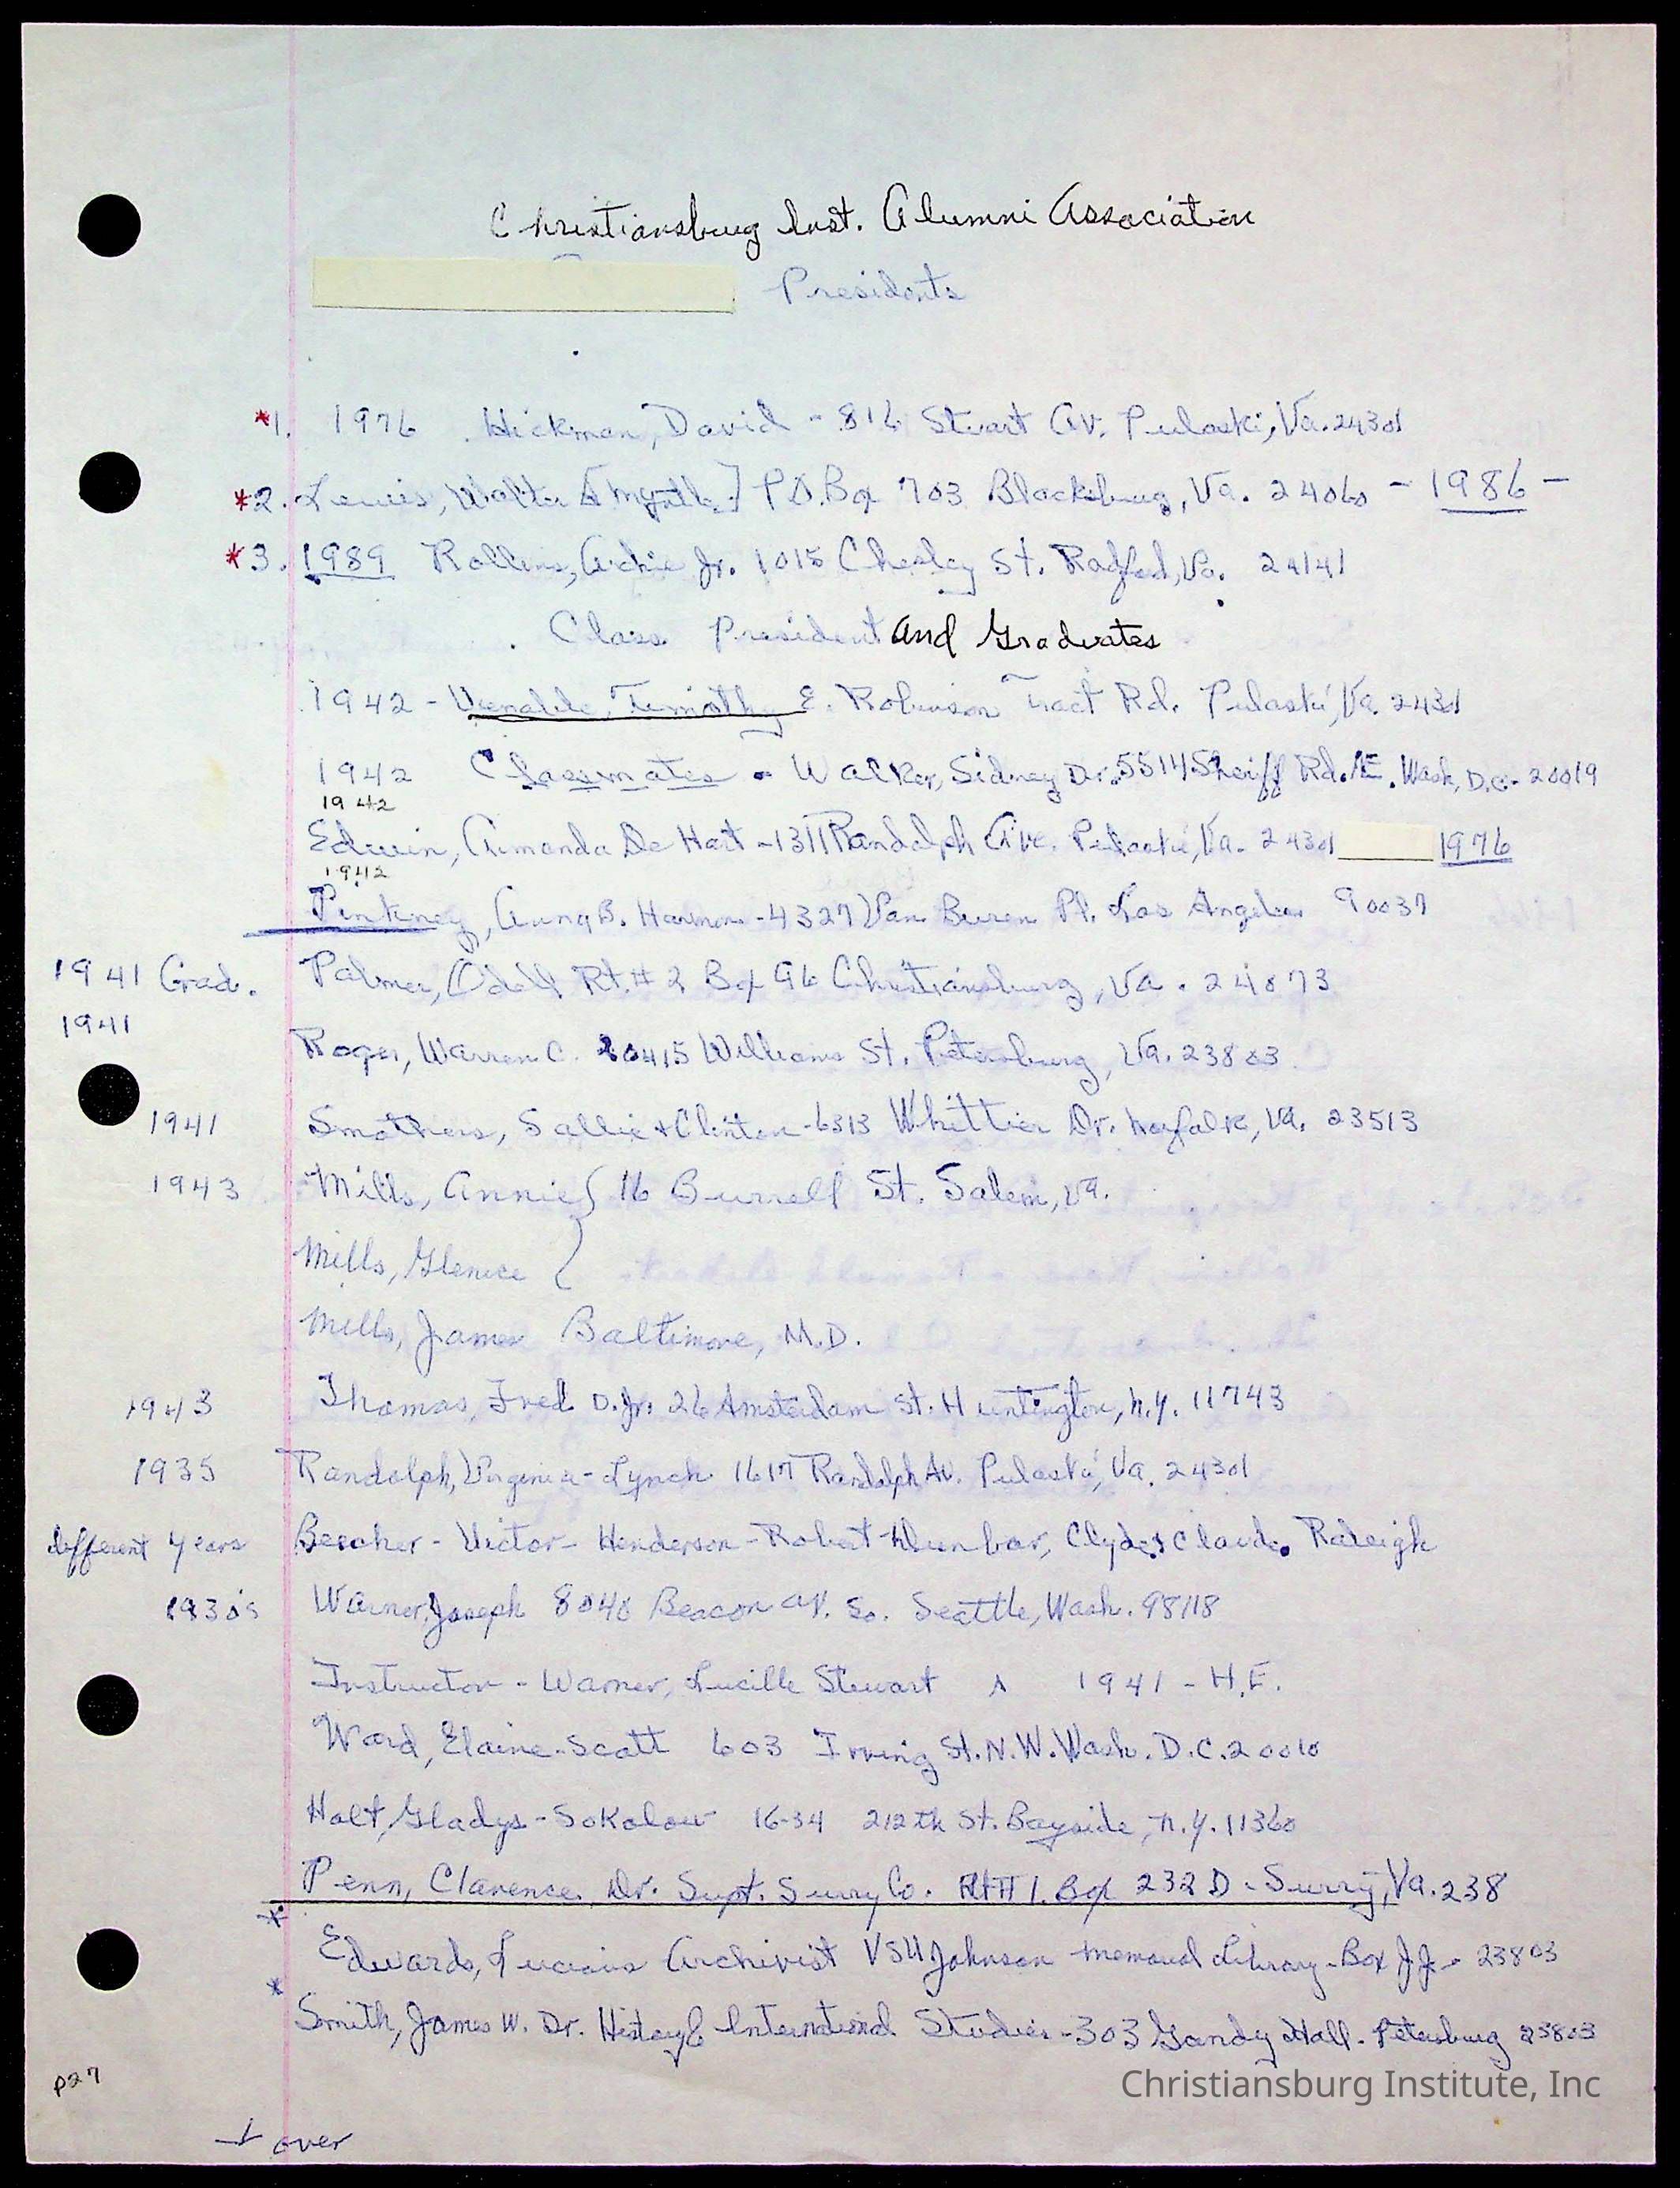 Christiansburg Inst. Alumni Association
Presidents
*1. 1976 Hickman, David - 816 Stuart Av. Pulaski, Va. 24301
*2. Lewis, Walter & Myrtle] P.O. Box 703 Blacksburg, Va. 24060 - 1986 -
*3. 1989 Rollins, Archie Jr. 1015 Chesley St. Radford, Va. 24141
Class President and Graduates
1942 - Venable, Timothy E. Robinson Tract Rd. Pulaski, Va. 24301
1942 Classmates - Walker, Sidney Dr. 5514 Sheriff Rd. NE. Wash, D.C. 20019
1942
Edwin, Armanda De Hart - 1311 Randolph Ave. Pulaski, Va. 24301 1976
1942
Pinkney, B. Harmon - 4327 Van Buren Pl. Los Angeles 90037
1941 Grad. Palmer, Odell Rt. # 2 Box 96 Christiansburg, Va. 24073
1941
Roger, Warren C. 20415 Williams St. Petersburg, Va. 23803
1941 Smothers, Sallie & Clinton - 6313 Whittier Dr. Norfolk, Va. 23513
1943 Mills, Annie } 16 Burrell St. Salem, Va.
Mills, Glenice }
Mills, James Baltimore, M.D.
1943 Thomas, Fred D. Jr. 26 Amsterdam St. Huntington, N.Y. 11743
1935 Randolph, Virginia - Lynch 1617 Randolph Av. Pulaski, Va. 24301
different years Beecher - Victor - Henderson - Robert - Dunbar, Clyde & Claude. Raleigh
1930's Warner, Joseph 8040 Beacon Av. So. Seattle, Wash. 98118
Instructor - Warner, Lucille Stewart ^ 1941 - H.E.
Ward, Elaine - Scott 603 Irving St. N.W. Wash. D.C. 20010
Holt, Gladys - Sokolow 16-34 212th St. Bayside, N.Y. 11360
Penn, Clarence, Dr. Supt. Surry Co. Rt # 1. Box 232 D - Surry, Va. 238
* Edwards, Lucious Archivist VSU Johnson Memorial Library - Box JJ - 23803
* Smith, James W. Dr. History & International Studies - 303 Gandy Hall - Petersburg 23803
p27
Christiansburg Institute, Inc
↓ over